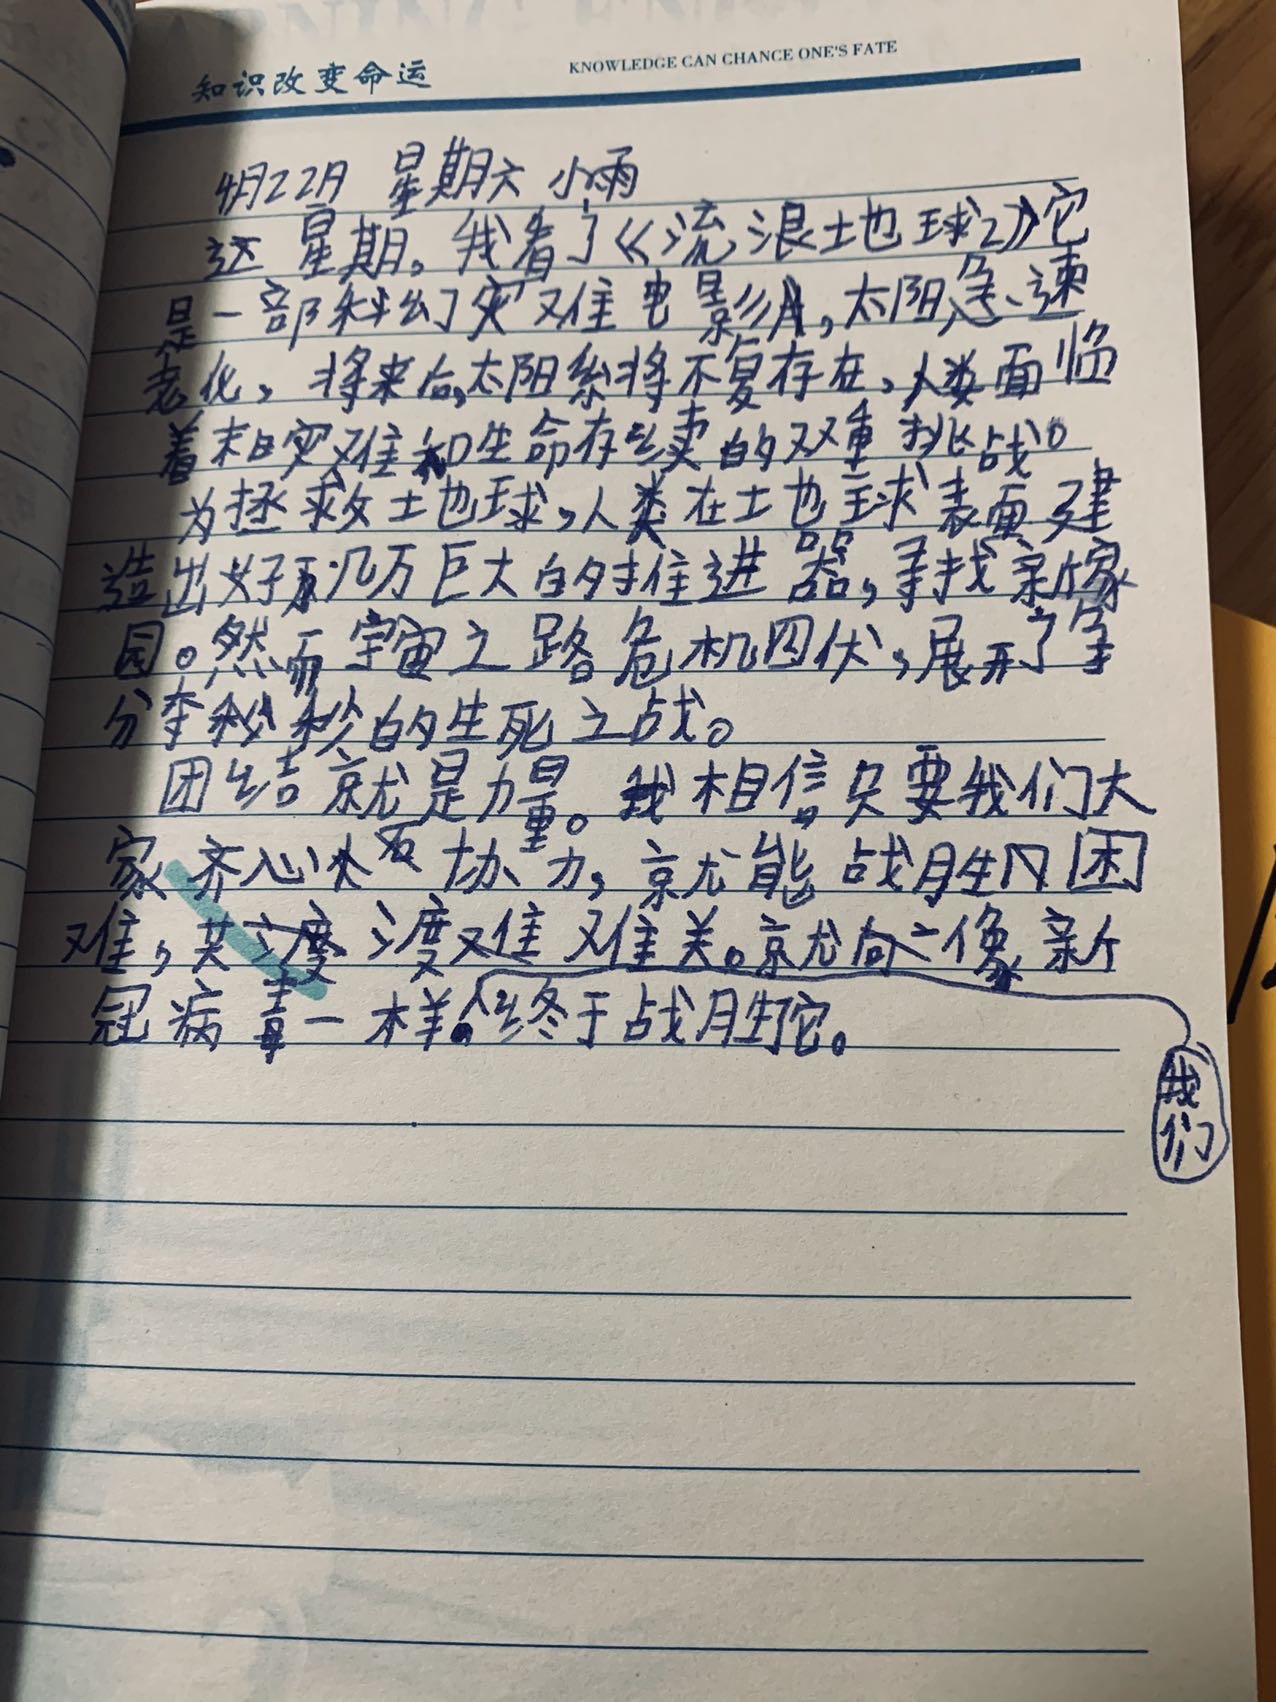 知识改变命运
KNOWLEDGE CAN CHANCE ONE'S FATE
4月22月 星期六 小雨
这星期。我看了《流浪地球2》它
是一部科幻灾难电影片,太阳急速
老化,将来后,太阳系将不复存在,人类面临
着末日灾难和生命存续的双重挑战。
为拯救土也球,人类在土也球表面建
造出好几万巨大的推进器,寻找新家
园。然而宇宙之路危机四伏,展开了争
分夺秒的生死之战。
团结就是力量。我相信只要我们大
家齐心协力,就能战胜困
难,共渡难关。就向像新
冠病毒一样。终于战胜它。
我们